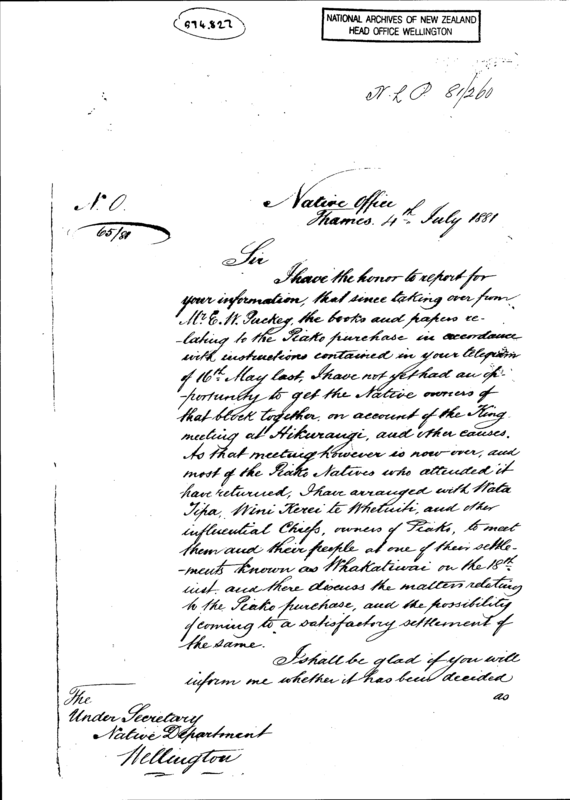 674.827
NATIONAL ARCHIVES OF NEW ZEALAND
HEAD OFFICE WELLINGTON
N. L. P. 81/260
Native Office
Thames. 4th July 1881
N. O.
65/81
Sir
I have the honor to report for
your information, that since taking over from
Mr. E. W. Puckey, the books and papers re-
-lating to the Piako purchase in accordance
with instructions contained in your telegram
of 16th May last, I have not yet had an op-
-portunity to get the Native owners of
that block together, on account of the King
meeting at Hikurangi, and other causes.
As that meeting however is now over, and
most of the Piako Natives who attended it
have returned, I have arranged with Wata
Tipa, Wini Kerei te Whetuiti, and other
influential Chiefs, owners of Piako, to meet
them and their people at one of their settle-
-ments known as Whakatiwai on the 18th
inst. and there discuss the matters relating
to the Piako purchase, and the possibility
of coming to a satisfactory settlement of
the same.
I shall be glad if you will
inform me whether it has been decided
as
The
Under Secretary
Native Department
Wellington